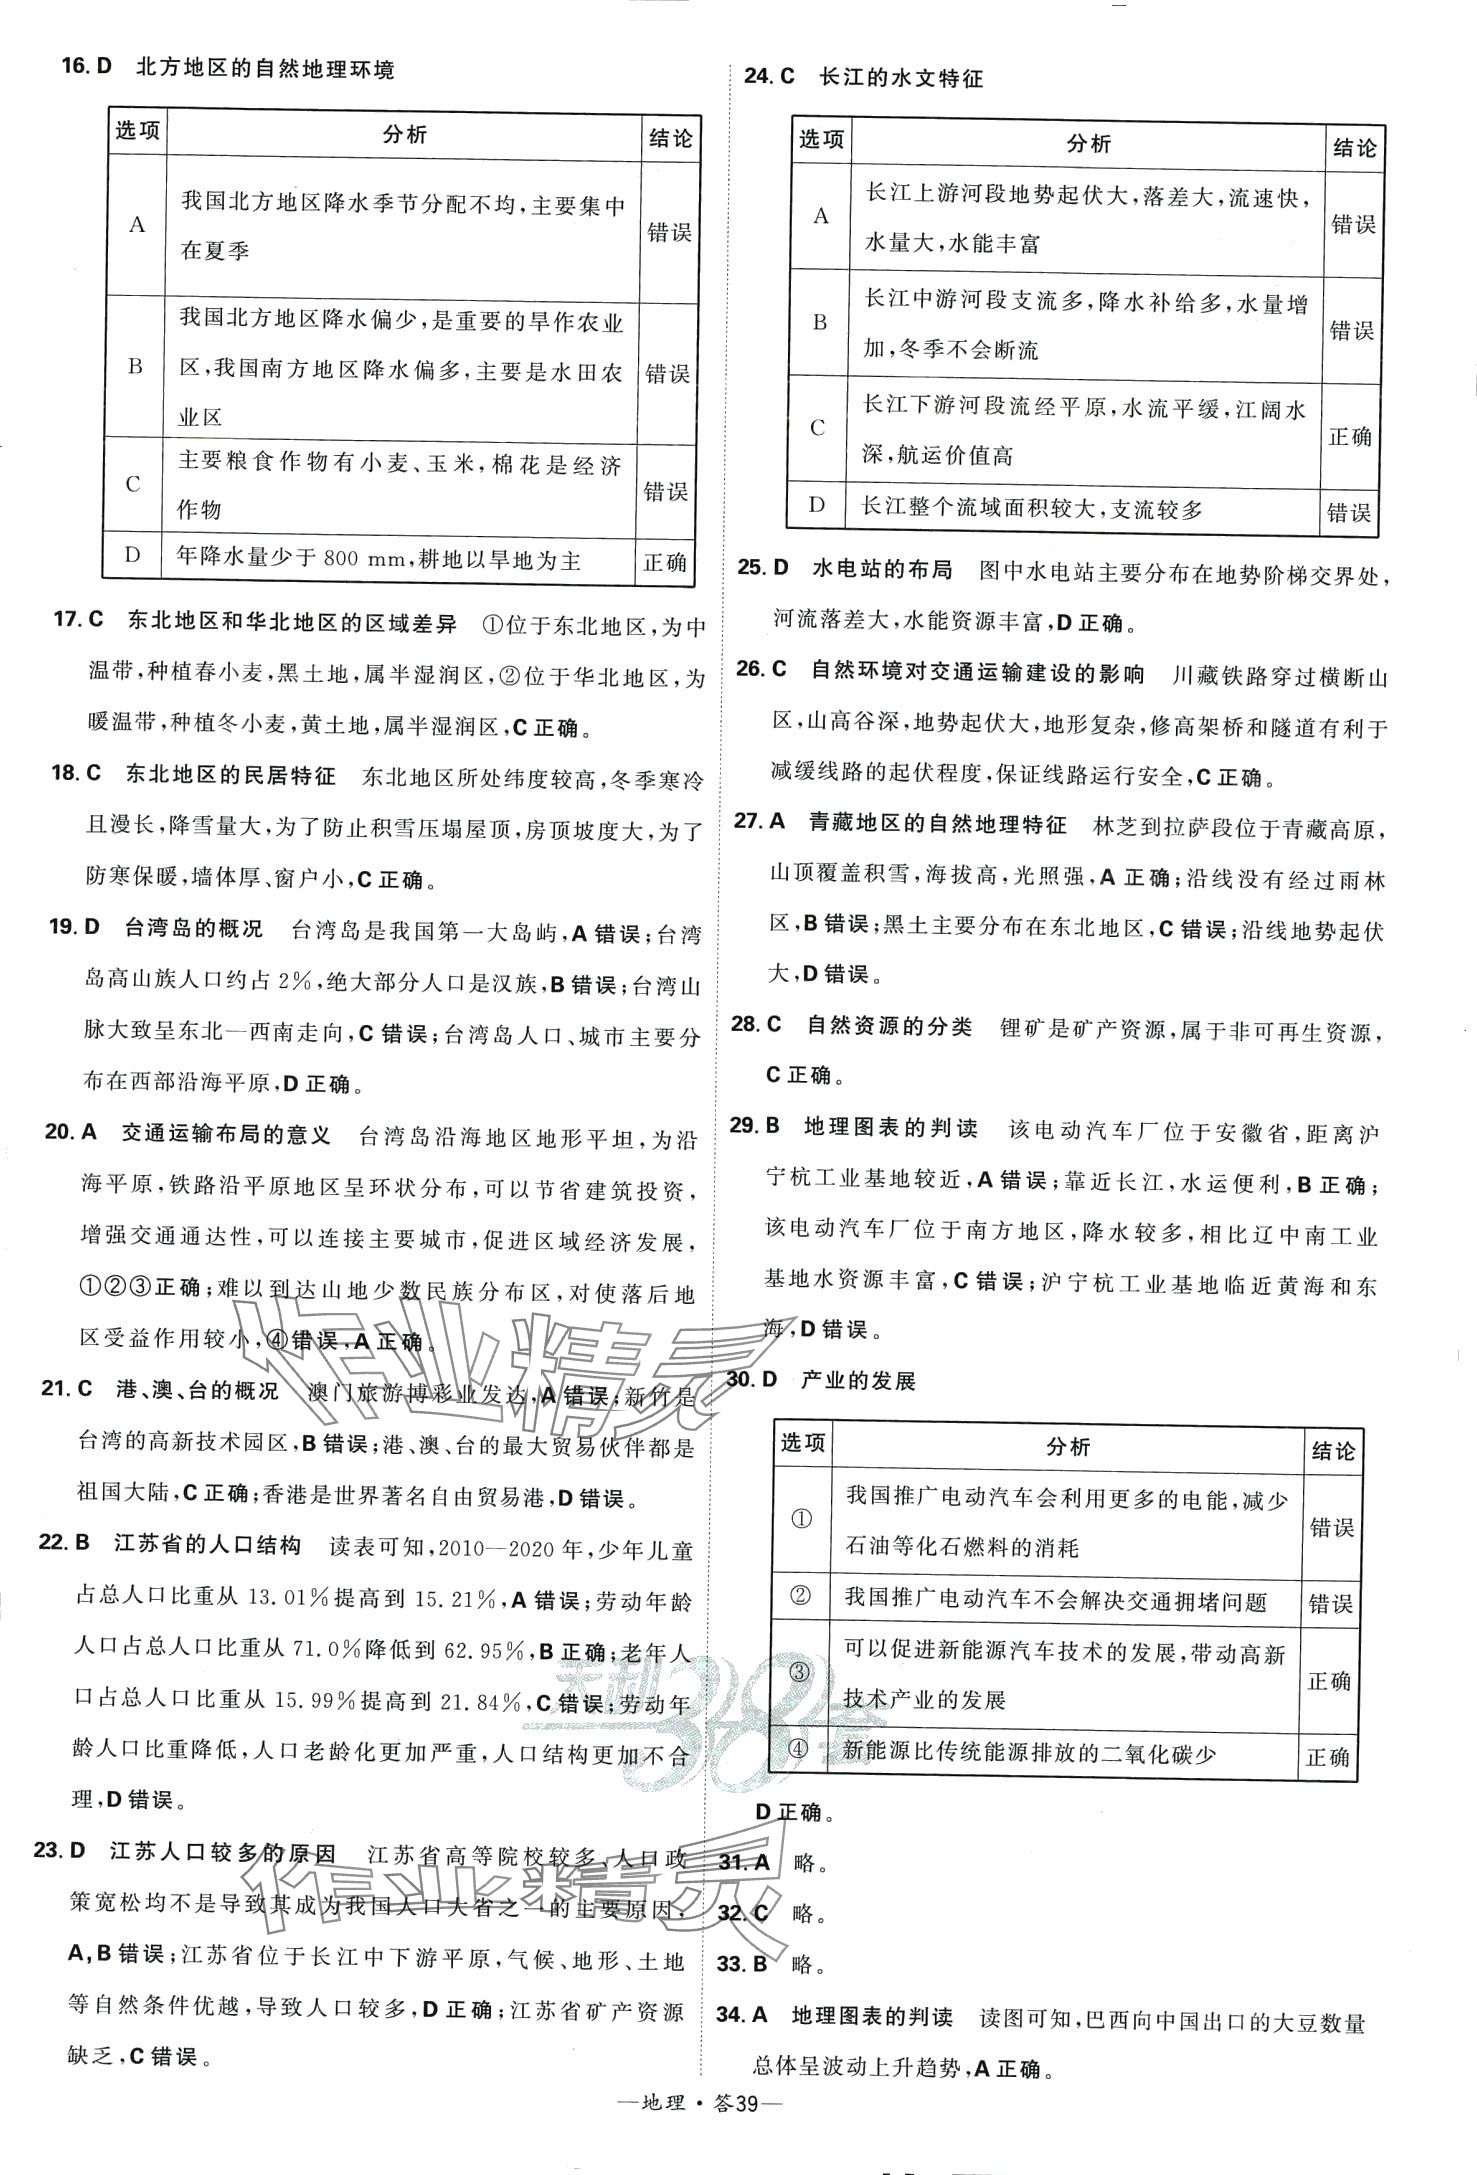 16. D　北方地区的自然地理环境
选项　分析　结论
A　我国北方地区降水季节分配不均，主要集中
在夏季　错误
B　我国北方地区降水偏少，是重要的旱作农业
区，我国南方地区降水偏多，主要是水田农
业区　错误
C　主要粮食作物有小麦、玉米，棉花是经济
作物　错误
D　年降水量少于 800 mm，耕地以旱地为主　正确
17. C　东北地区和华北地区的区域差异　①位于东北地区，为中
温带，种植春小麦，黑土地，属半湿润区，②位于华北地区，为
暖温带，种植冬小麦，黄土地，属半湿润区，C 正确。
18. C　东北地区的民居特征　东北地区所处纬度较高，冬季寒冷
且漫长，降雪量大，为了防止积雪压塌屋顶，房顶坡度大，为了
防寒保暖，墙体厚、窗户小，C 正确。
19. D　台湾岛的概况　台湾岛是我国第一大岛屿，A 错误；台湾
岛高山族人口约占 2%，绝大部分人口是汉族，B 错误；台湾山
脉大致呈东北—西南走向，C 错误；台湾岛人口、城市主要分
布在西部沿海平原，D 正确。
20. A　交通运输布局的意义　台湾岛沿海地区地形平坦，为沿
海平原，铁路沿平原地区呈环状分布，可以节省建筑投资，
增强交通通达性，可以连接主要城市，促进区域经济发展，
①②③正确；难以到达山地少数民族分布区，对使落后地
区受益作用较小，④错误，A 正确。
21. C　港、澳、台的概况　澳门旅游博彩业发达，A 错误；新竹是
台湾的高新技术园区，B 错误；港、澳、台的最大贸易伙伴都是
祖国大陆，C 正确；香港是世界著名自由贸易港，D 错误。
22. B　江苏省的人口结构　读表可知，2010—2020 年，少年儿童
占总人口比重从 13.01%提高到 15.21%，A 错误；劳动年龄
人口占总人口比重从 71.0%降低到 62.95%，B 正确；老年人
口占总人口比重从 15.99%提高到 21.84%，C 错误；劳动年
龄人口比重降低，人口老龄化更加严重，人口结构更加不合
理，D 错误。
23. D　江苏人口较多的原因　江苏省高等院校较多、人口政
策宽松均不是导致其成为我国人口大省之一的主要原因，
A、B 错误；江苏省位于长江中下游平原，气候、地形、土地
等自然条件优越，导致人口较多，D 正确；江苏省矿产资源
缺乏，C 错误。
24. C　长江的水文特征
选项　分析　结论
A　长江上游河段地势起伏大，落差大，流速快，
水量大，水能丰富　错误
B　长江中游河段支流多，降水补给多，水量增
加，冬季不会断流　错误
C　长江下游河段流经平原，水流平缓，江阔水
深，航运价值高　正确
D　长江整个流域面积较大，支流较多　错误
25. D　水电站的布局　图中水电站主要分布在地势阶梯交界处，
河流落差大，水能资源丰富，D 正确。
26. C　自然环境对交通运输建设的影响　川藏铁路穿过横断山
区，山高谷深，地势起伏大，地形复杂，修高架桥和隧道有利于
减缓线路的起伏程度，保证线路运行安全，C 正确。
27. A　青藏地区的自然地理特征　林芝到拉萨段位于青藏高原，
山顶覆盖积雪，海拔高，光照强，A 正确；沿线没有经过雨林
区，B 错误；黑土主要分布在东北地区，C 错误；沿线地势起伏
大，D 错误。
28. C　自然资源的分类　锂矿是矿产资源，属于非可再生资源，
C 正确。
29. B　地理图表的判读　该电动汽车厂位于安徽省，距离沪
宁杭工业基地较近，A 错误；靠近长江，水运便利，B 正确；
该电动汽车厂位于南方地区，降水较多，相比辽中南工业
基地水资源丰富，C 错误；沪宁杭工业基地临近黄海和东
海，D 错误。
30. D　产业的发展
选项　分析　结论
①　我国推广电动汽车会利用更多的电能，减少
石油等化石燃料的消耗　错误
②　我国推广电动汽车不会解决交通拥堵问题　错误
③　可以促进新能源汽车技术的发展，带动高新
技术产业的发展　正确
④　新能源比传统能源排放的二氧化碳少　正确
D 正确。
31. A　略。
32. C　略。
33. B　略。
34. A　地理图表的判读　读图可知，巴西向中国出口的大豆数量
总体呈波动上升趋势，A 正确。
作业精灵
天利38套
作业精灵
—地理·答39—